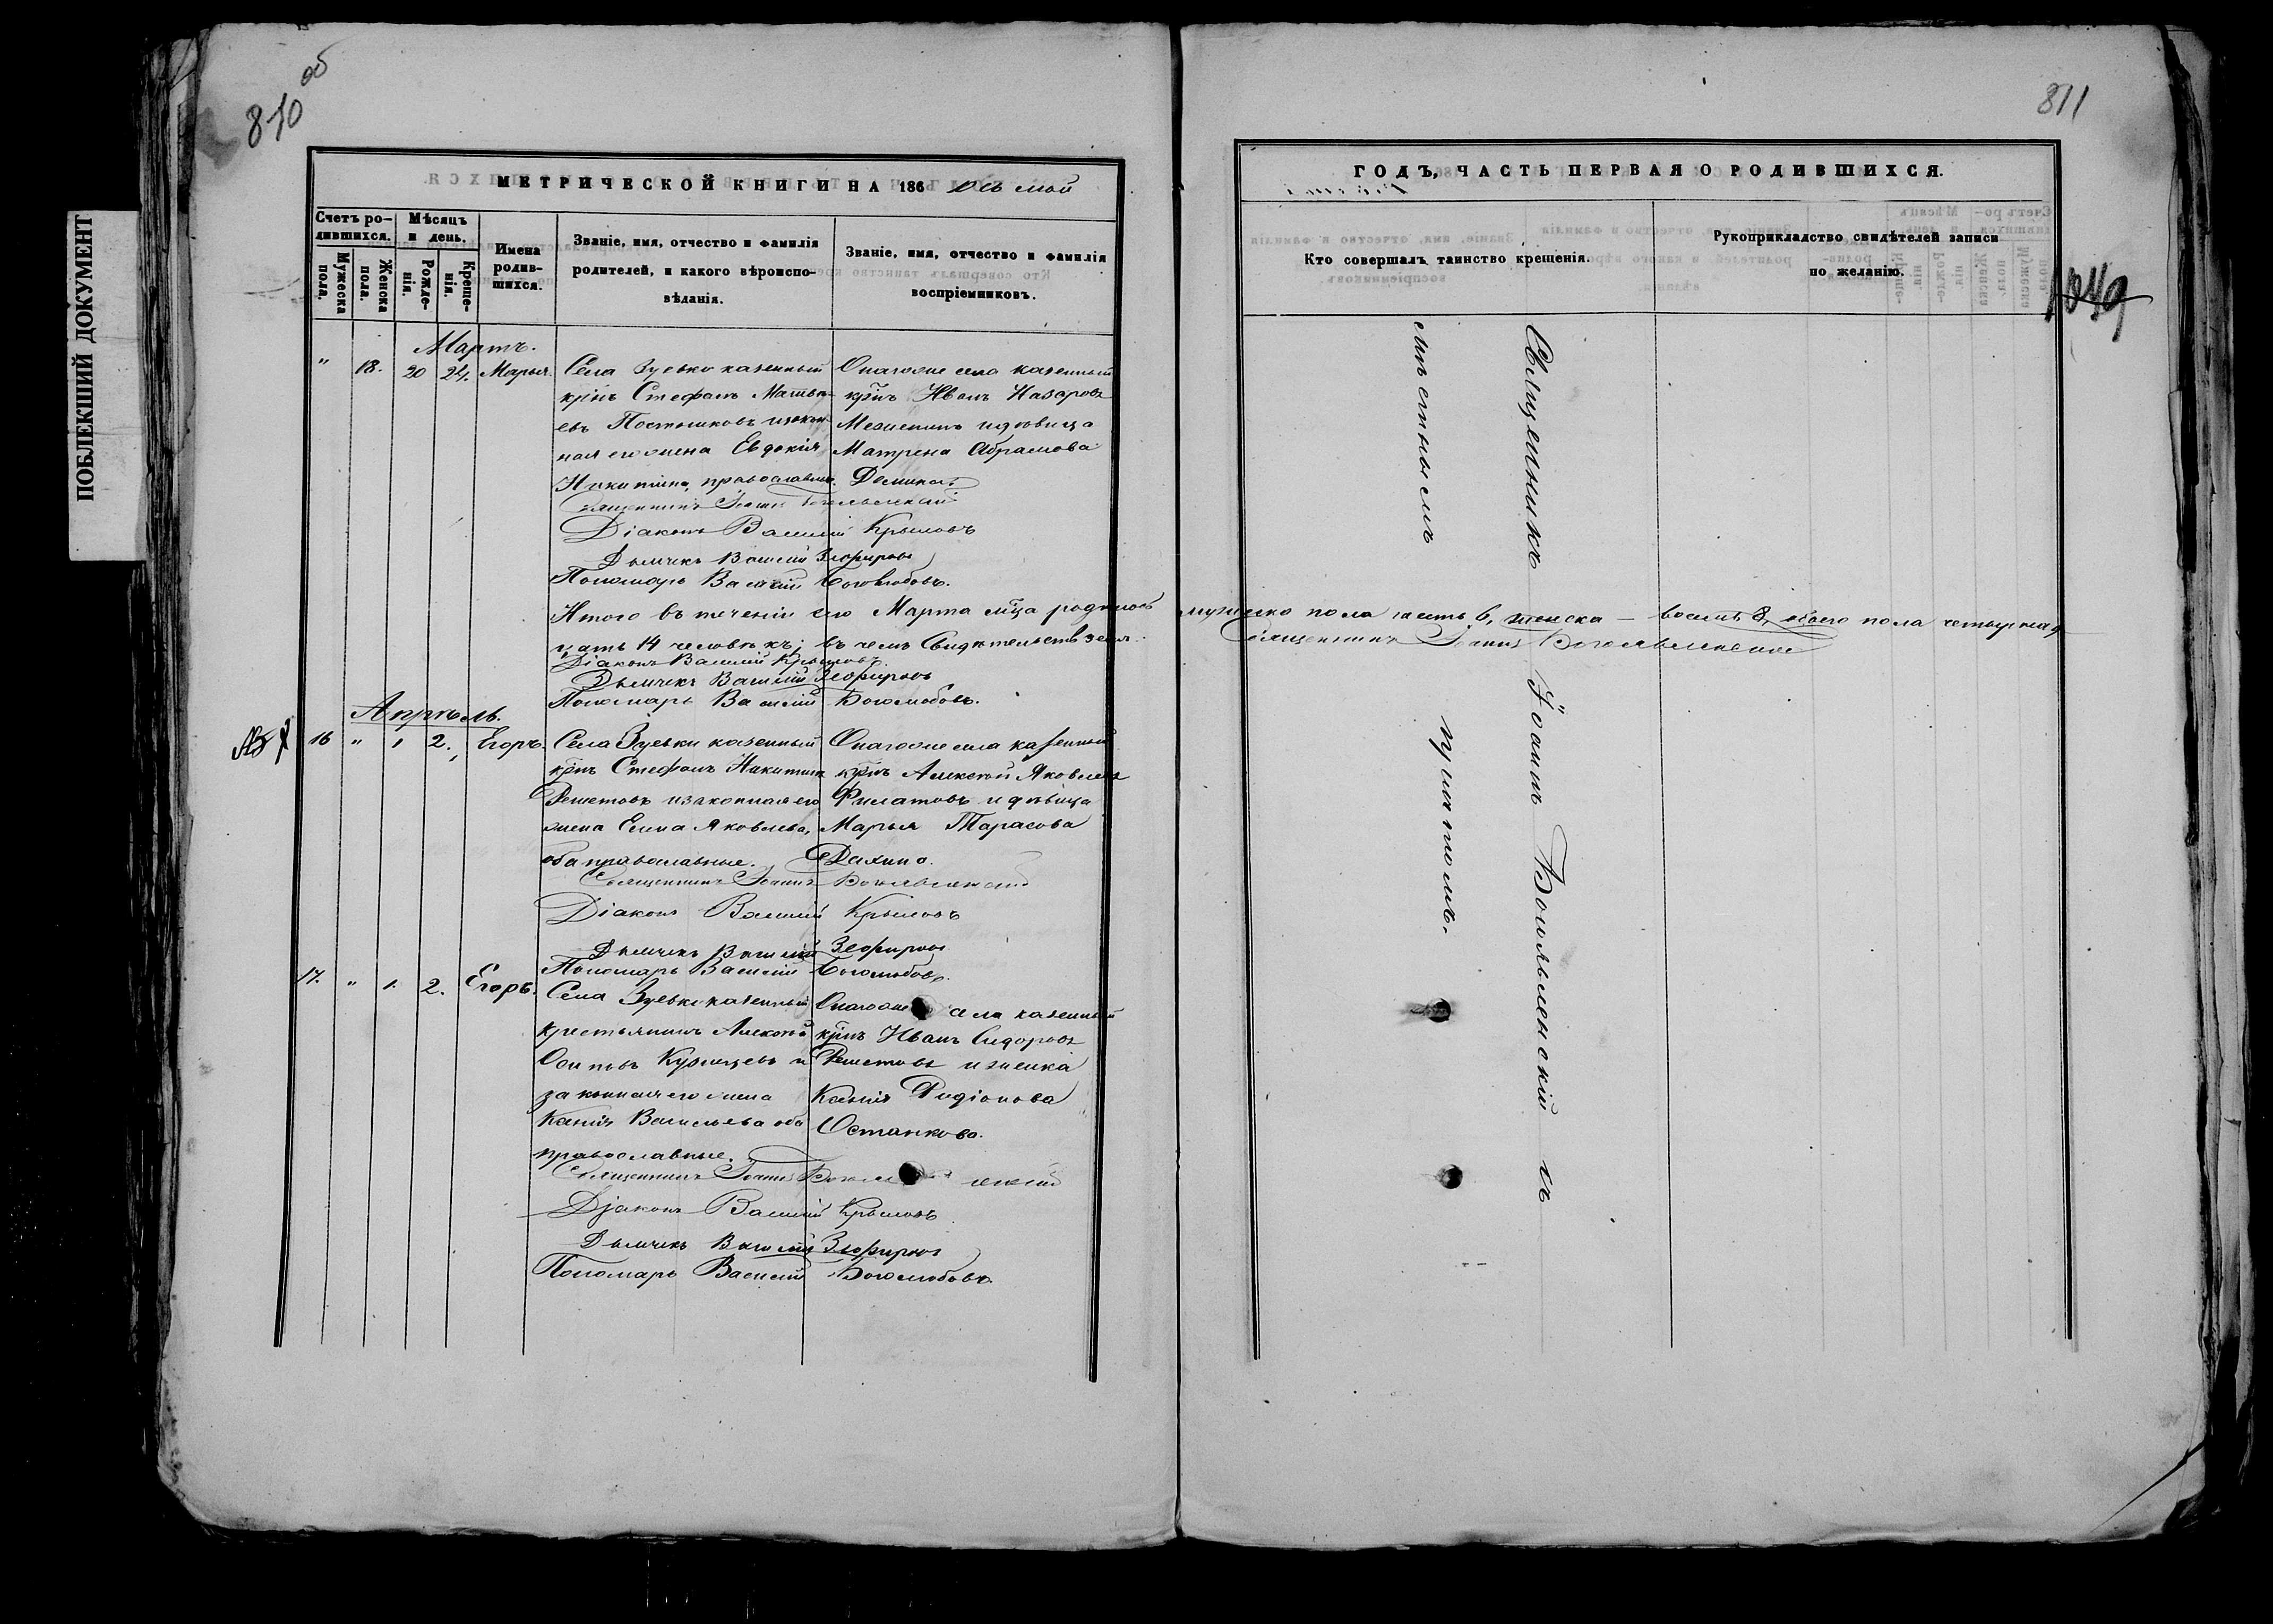 ПОБЛЕКШИЙ ДОКУМЕНТ
810 об
МЕТРИЧЕСКОЙ КНИГИ НА 186
Счетъ родившихся.
Мужеска пола.
Женска пола.
Мѣсяцъ и день.
Рожденія.
Крещенія.
Имена родив-
шихся.
Званіе, имя, отчество и фамилія
родителей, и какого вѣроиспо-
вѣданія.
Званіе, имя, отчество и фамилія
воспріемниковъ.
Мартъ.
" 18. 20 24. Марья.
Села Зуевки казенный
крнъ Стефанъ Матвѣ-
евъ Постниковъ и закон-
ная его жена Евдокія
Никитина, православн.
Онагоже села казенный
крнъ Иванъ Назаровъ
и дѣвица
Матрена Абрамова
Священникъ Іоаннъ Богоявленскій
Діаконъ Василій Крыловъ
Дьячекъ Василій Зефировъ
Пономарь Василій Боголюбовъ.
Итого въ теченіи сего Марта мца родилось мужеско пола шесть 6, женска – восемь 8, обоего пола четырнад
цать 14 человѣкъ; въ чемъ Свидѣтельствуемъ. Священникъ Іоаннъ Богоявленскій
Діаконъ Василій Крыловъ.
Дьячекъ Василій Зефировъ
Пономарь Василій Боголюбовъ.
Апрѣль.
16 " 1 2. Егоръ.
Села Зуевки казенный
крнъ Стефанъ Никитинъ
Решетовъ и законная его
жена Елена Яковлева,
оба православные.
Онагоже села казенный
крнъ Алексѣй Яковлевъ
Филатовъ и дѣвица
Марья Тарасова
Священникъ Іоаннъ Богоявленскій
Діаконъ Василій Крыловъ
Дьячекъ Василій Зефировъ
Пономарь Василій Боголюбовъ.
17. " 1. 2. Егоръ.
Села Зуевки казенный
крестьянинъ Алексѣй
Осиповъ Кузнецовъ и
законная его жена
Ксенія Васильева оба
православные.
Онагоже села казенный
крнъ Иванъ Сидоровъ
Решетовъ и женка
Ксенія Родіонова
Останкова.
Священникъ Іоаннъ Богоявленскій
Діаконъ Василій Крыловъ
Дьячекъ Василій Зефировъ
Пономарь Василій Боголюбовъ.
811
ГОДЪ, ЧАСТЬ ПЕРВАЯ О РОДИВШИХСЯ.
Кто совершалъ таинство крещенія.
Рукоприкладство свидѣтелей записи
по желанію.
1049
Священникъ Іоаннъ Богоявленскій съ
мѣстнымъ причтомъ.